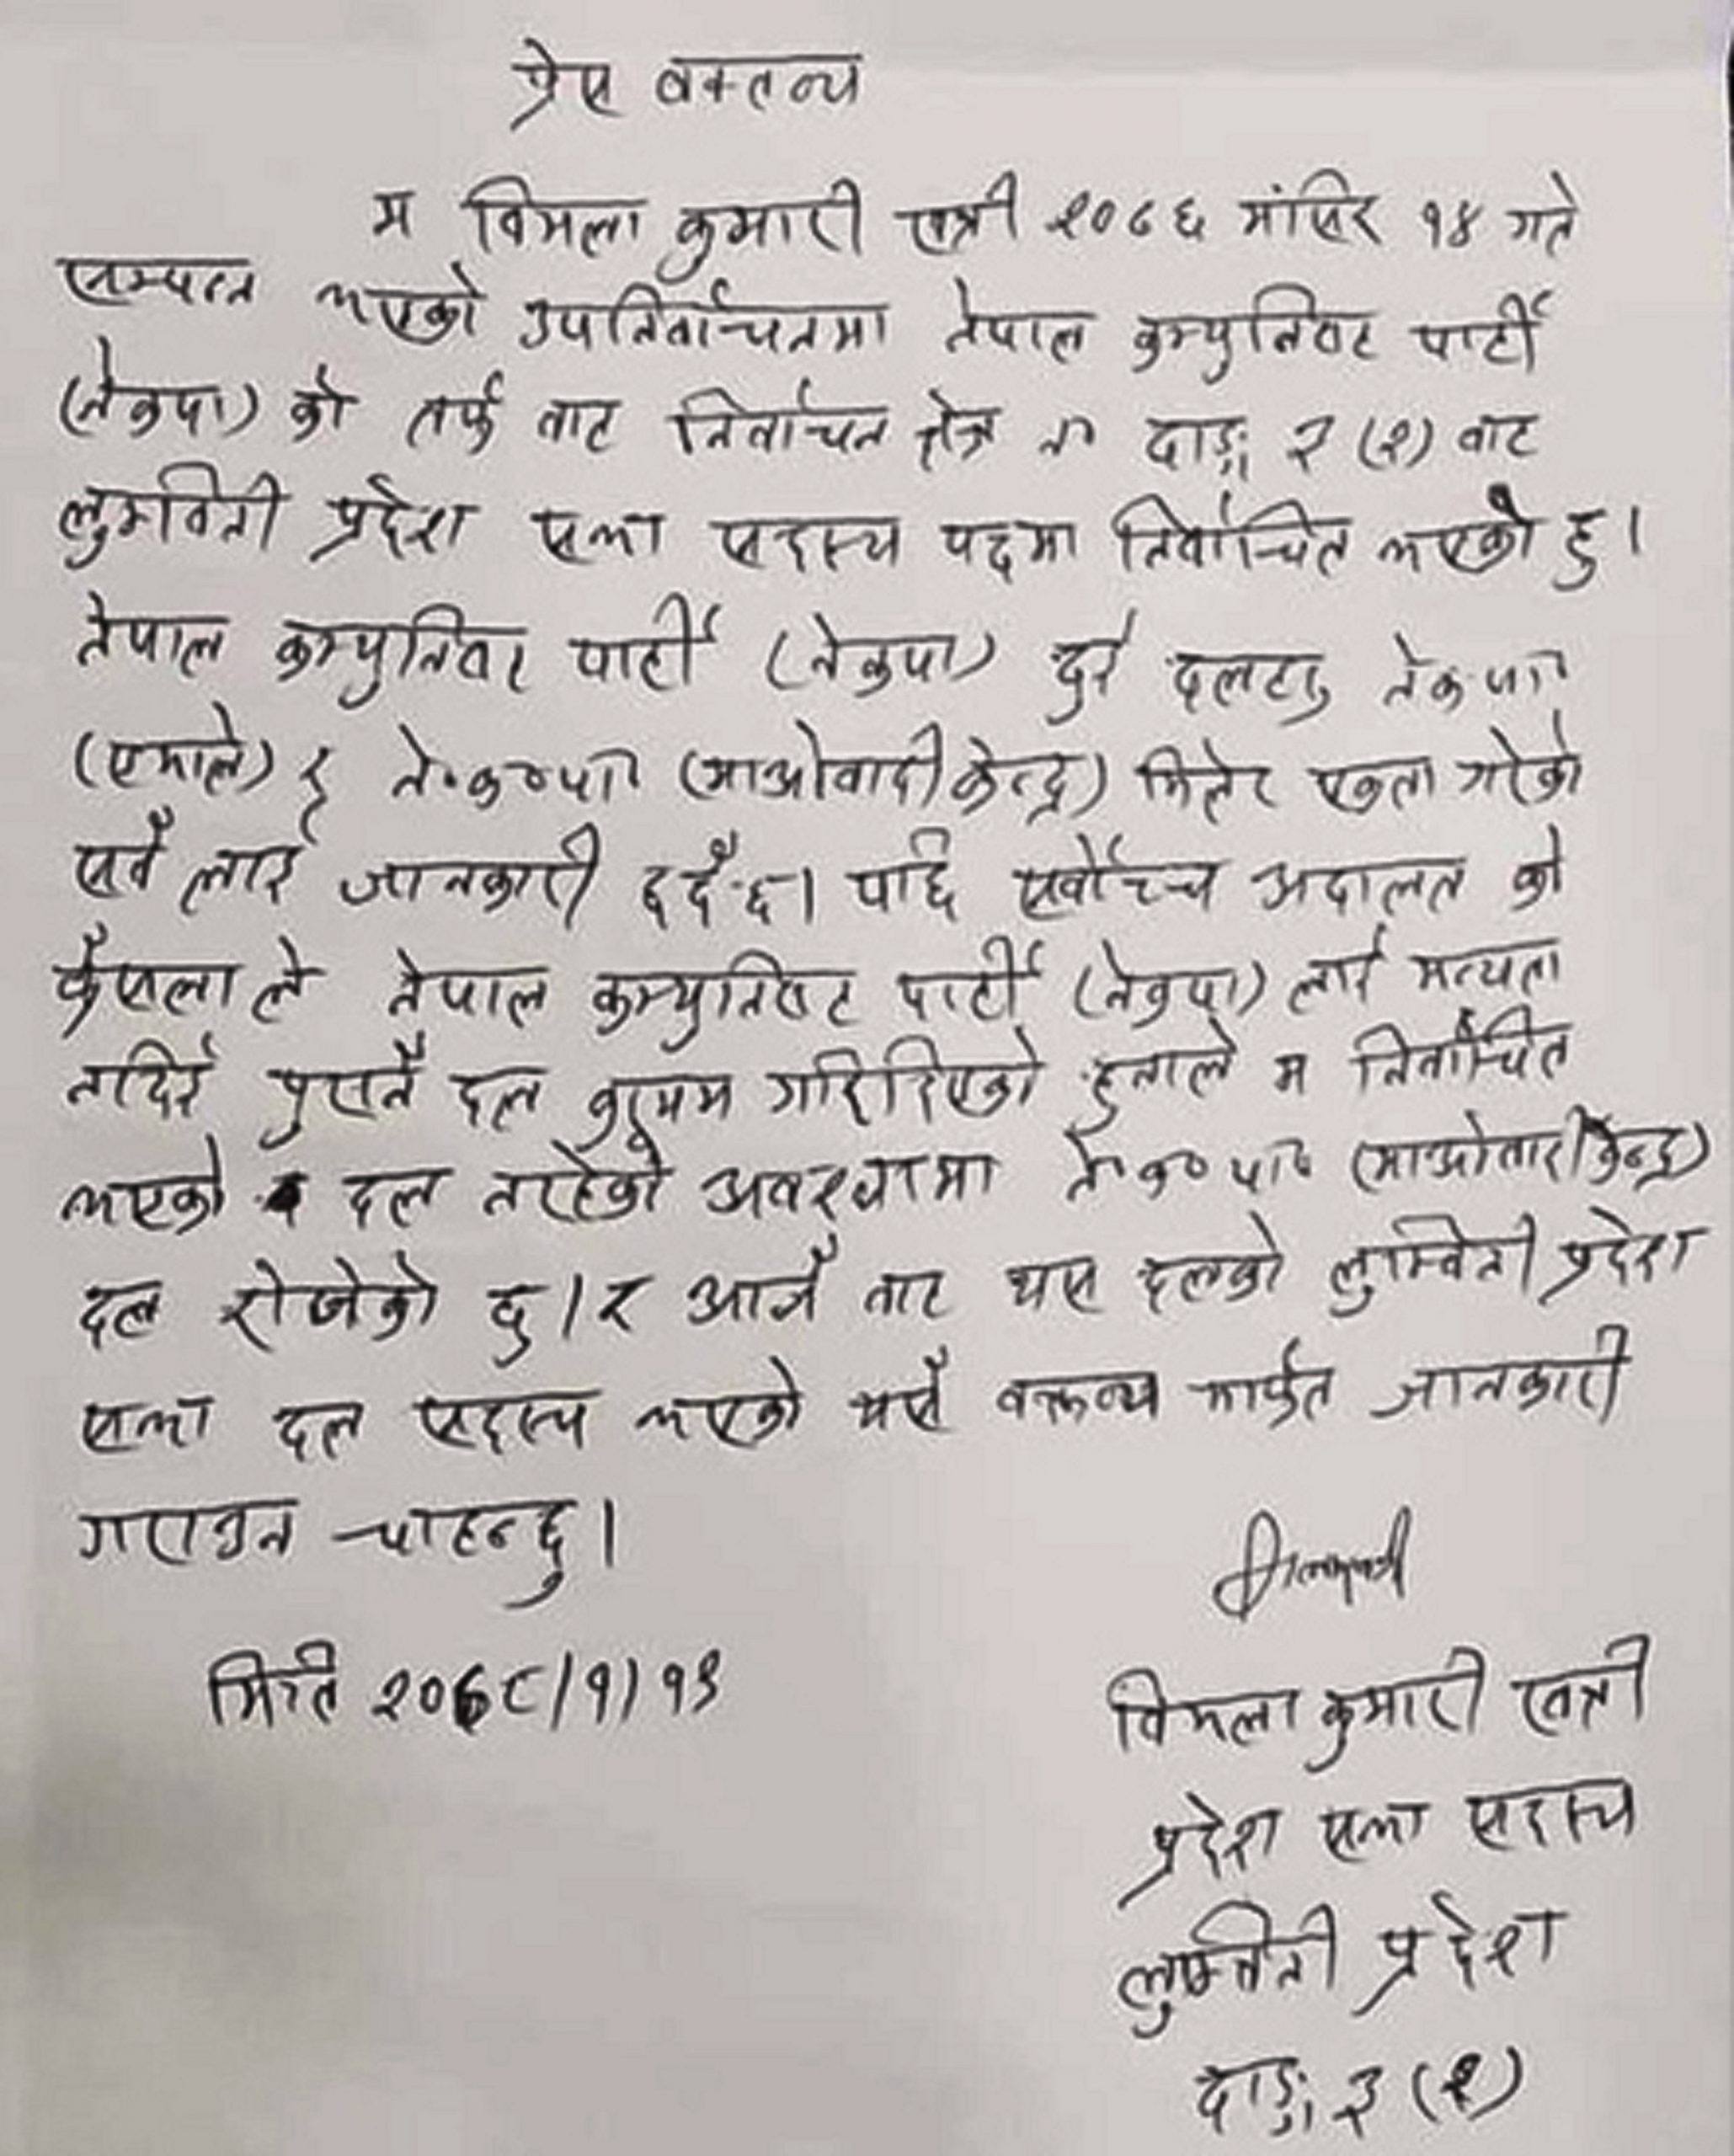 प्रेस वक्तव्य
म विमला कुमारी खत्री २०७६ मंसिर १४ गते
सम्पन्न भएको उपनिर्वाचनमा नेपाल कम्युनिष्ट पार्टी
(नेकपा) को तर्फ बाट निर्वाचन क्षेत्र नं दाङ ३ (२) बाट
लुम्बिनी प्रदेश सभा सदस्य पदमा निर्वाचित भएको हु।
नेपाल कम्युनिष्ट पार्टी (नेकपा) दुई दल नेकपा
(एमाले) र ने.क.पा (माओवादी केन्द्र) मिलेर एकता गरेको
सबै लाई जानकारी छदैछ। पछि सर्वोच्च अदालत को
फैसला ले नेपाल कम्युनिष्ट पार्टी (नेकपा) लाई मन्यता
नदिई पुरानै दल कायम गरिदिएको हुनाले म निर्वाचित
भएको दल नरहेको अवस्थामा ने०क०पा० (माओवादी केन्द्र)
दल रोजेको छु।र आजै बाट यस दलको लुम्बिनी प्रदेश
सभा दल सदस्य भएको यसै वक्तव्य मार्फत जानकारी
गराउन चाहन्छु।
मिति २०७८/१/१३
विमला कुमारी खत्री
प्रदेश सभा सदस्य
लुम्बिनी प्रदेश
दाङ ३ (२)